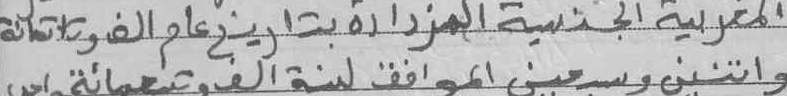 المغربية الجنسية المزدادة بتاريخ عام الف وثلاثمائة
واثنين وسبعين الموافق لسنة الف وتسعمائة